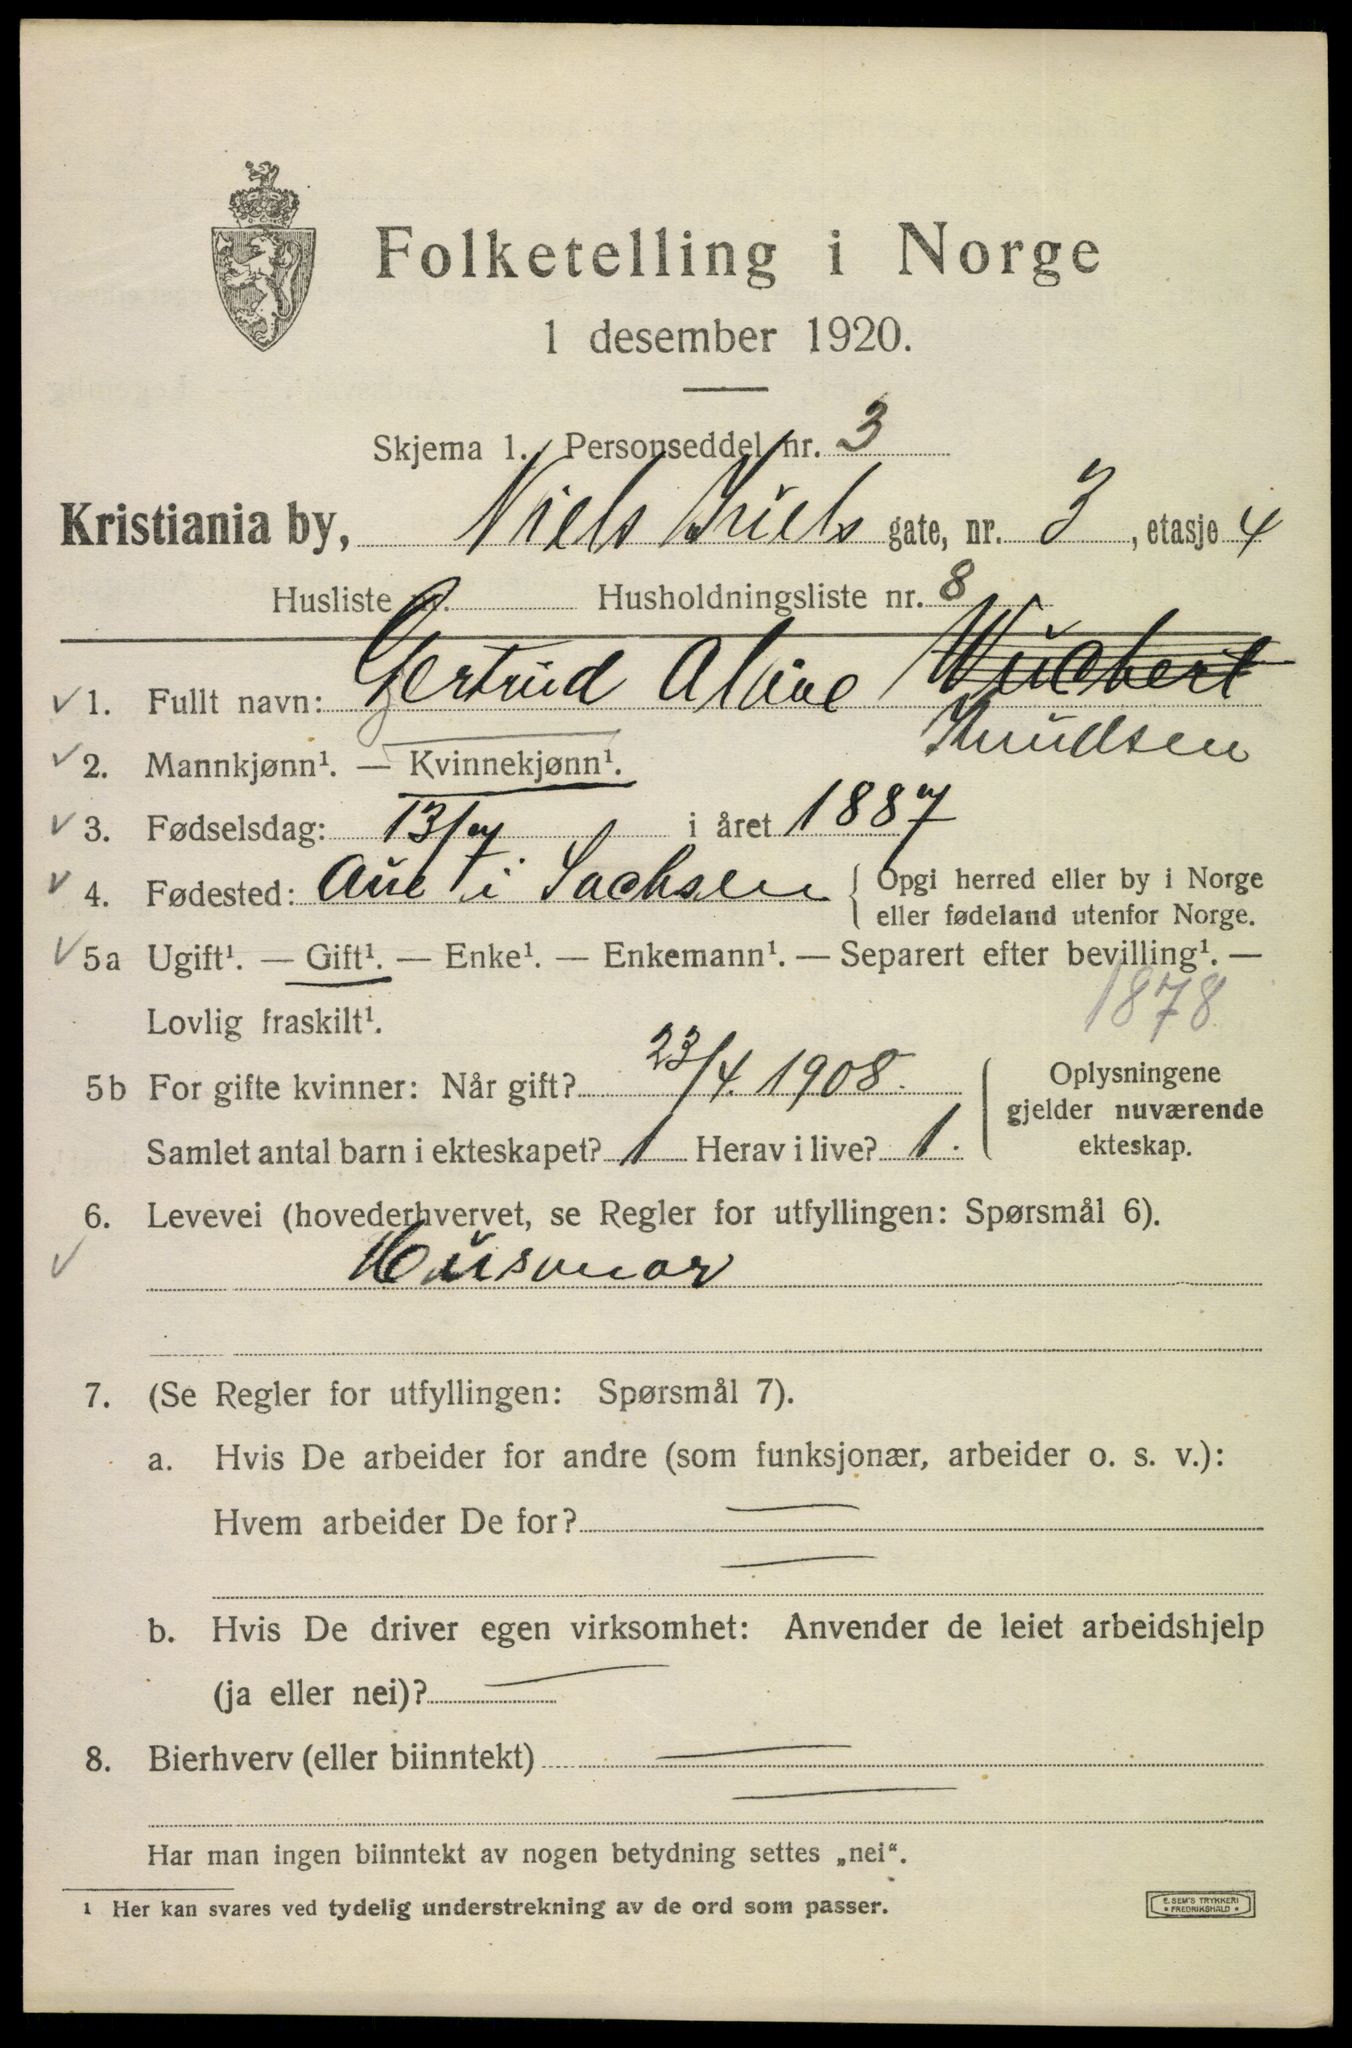 Folketelling i Norge
1 desember 1920.
Skjema 1. Personseddel nr. 3
Kristiania by, Niels Juels gate, nr. 3, etasje 4
Husliste nr. Husholdningsliste nr. 8
1. Fullt navn: Gertrud Alvine Wuchert
Knudsen
2. Mannkjønn¹. — Kvinnekjønn¹.
3. Fødselsdag: 13/ i året 1887
4. Fødested: Aue i Sachsen { Opgi herred eller by i Norge
eller fødeland utenfor Norge.
5a Ugift¹. — Gift¹. — Enke¹. — Enkemann¹. — Separert efter bevilling¹. —
Lovlig fraskilt¹. 1878
5b For gifte kvinner: Når gift? 23/4. 1908. { Oplysningene
gjelder nuværende
Samlet antal barn i ekteskapet? 1 Herav i live? 1. ekteskap.
6. Levevei (hovederhvervet, se Regler for utfyllingen: Spørsmål 6).
Husmor
7. (Se Regler for utfyllingen: Spørsmål 7).
a. Hvis De arbeider for andre (som funksjonær, arbeider o. s. v.):
Hvem arbeider De for?
b. Hvis De driver egen virksomhet: Anvender de leiet arbeidshjelp
(ja eller nei)?
8. Bierhverv (eller biinntekt)
Har man ingen biinntekt av nogen betydning settes „nei“.
¹ Her kan svares ved tydelig understrekning av de ord som passer.
E. SEM'S TRYKKERI
* FREDRIKSHALD *